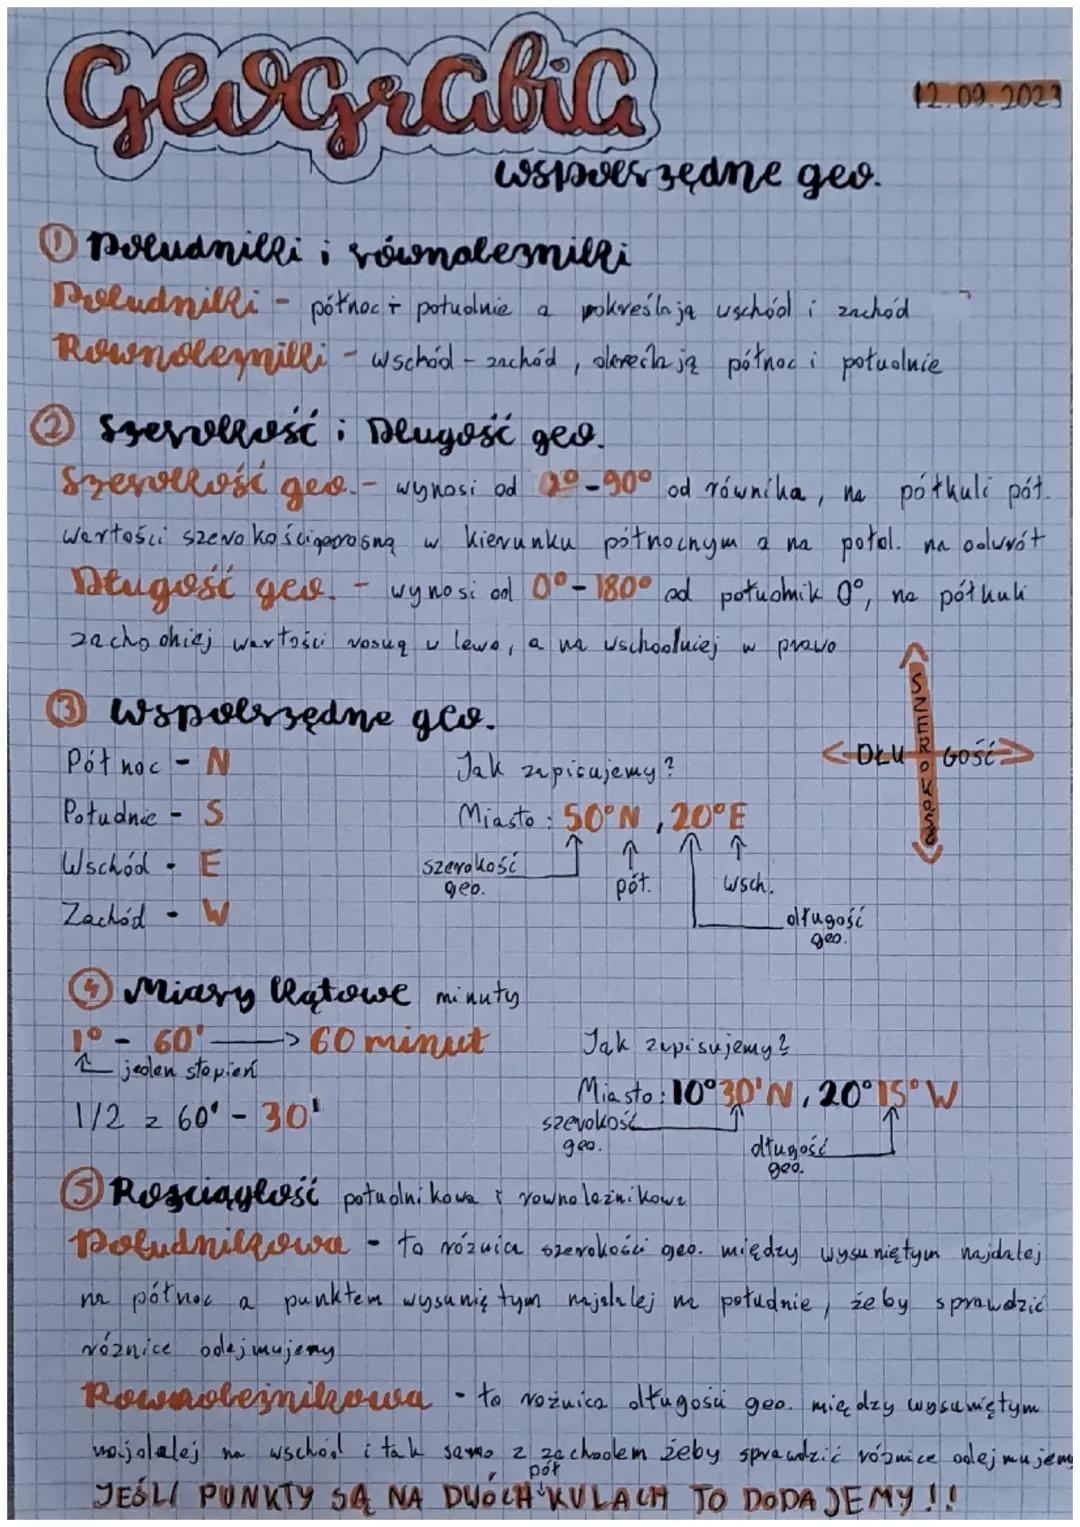 GeoGrafia
12.09.2023
współrzędne geo.
① Południki i równoleżniki
Południki - północ i południe a określają wschód i zachód
Równoleżniki - wschód - zachód, określają północ i południe
② Szerokość i Długość geo.
Szerokość geo. - wynosi od 0° - 90° od równika, na półkuli pół.
wartości szerokości rosną w kierunku północnym a na połol. na odwrót
Długość geo. - wynosi od 0° - 180° od południk 0°, na półkuli
zachodniej wartości rosną w lewo, a na wschodniej w prawo
③ Współrzędne geo.
Północ - N
Południe - S
Wschód - E
Zachód - W
Jak zapisujemy?
Miasto : 50°N , 20°E
szerokość
geo.
pół.
wsch.
długość
geo.
SZEROKOŚĆ
DŁU GOŚĆ
④ Miary kątowe minuty
1° - 60' → 60 minut
jeden stopień
1/2 z 60' - 30'
Jak zapisujemy?
Miasto : 10°30'N , 20°15°W
szerokość
geo.
długość
geo.
⑤ Rozciągłość południkowa i rownoleżnikowa
Południkowa - to różnica szerokości geo. między wysuniętym najdalej
na północ a punktem wysuniętym najdalej na południe, żeby sprawdzić
różnice odejmujemy
Rownoleżnikowa - to rożnica długości geo. między wysuniętym
najdalej na wschód i tak samo z zachodem żeby sprawdzić różnice odejmujemy
JEŚLI PUNKTY SĄ NA DWÓCH pół KULACH TO DODAJEMY!!